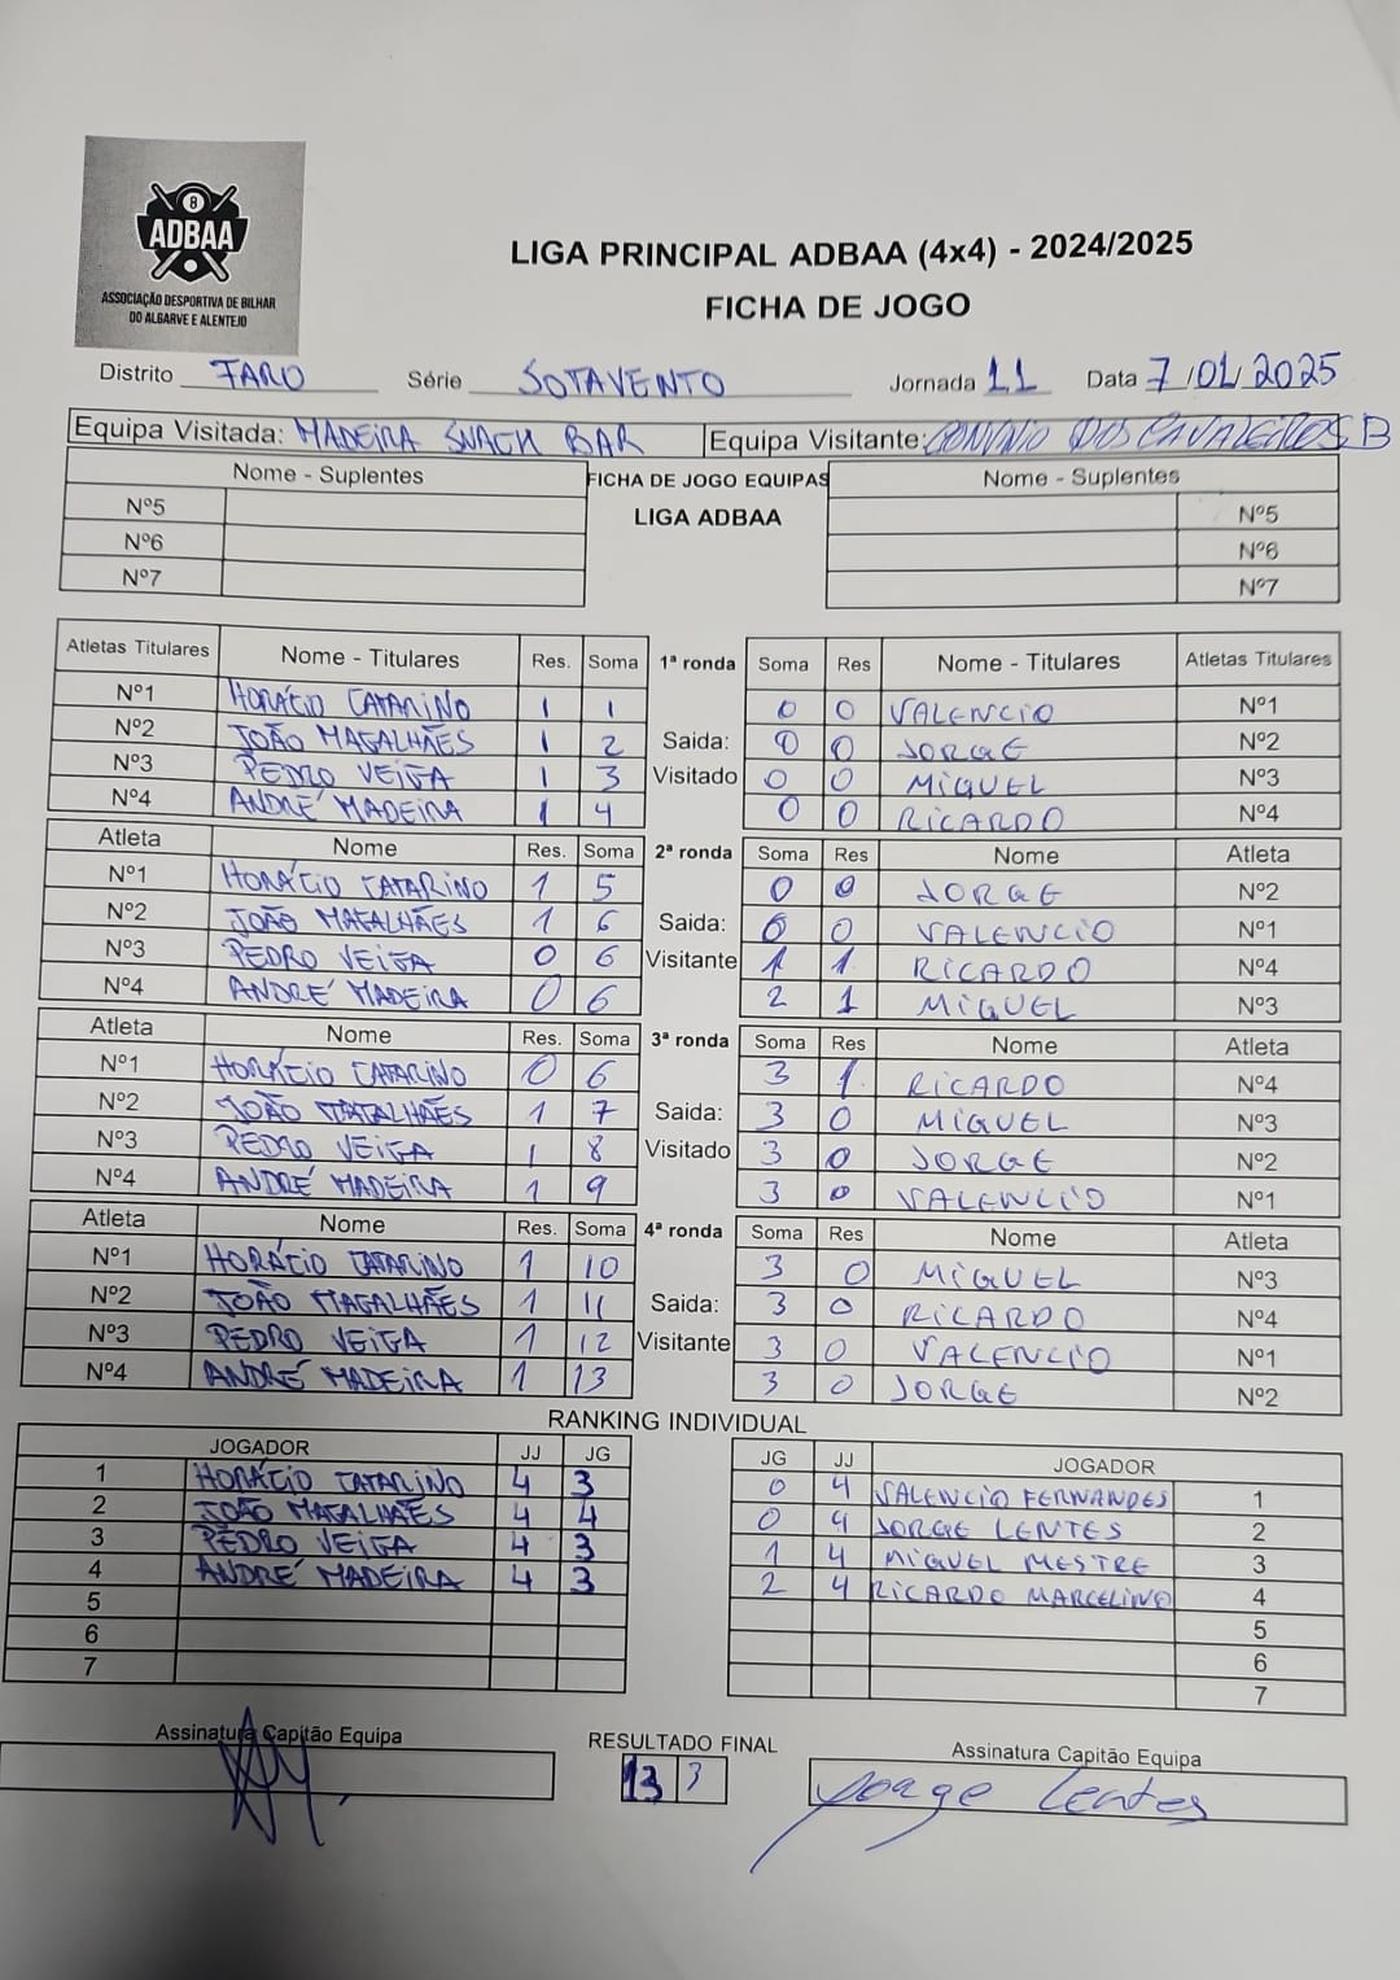 8
ADBAA
ASSOCIAÇÃO DESPORTIVA DE BILHAR
DO ALGARVE E ALENTEJO
LIGA PRINCIPAL ADBAA (4x4) - 2024/2025
FICHA DE JOGO
Distrito FARO Série SOTAVENTO Jornada 11 Data 7/01/2025
Equipa Visitada: MADEIRA SNACK BAR Equipa Visitante: CONVIVIO DOS CAVALEIROS B
Nome - Suplentes FICHA DE JOGO EQUIPAS Nome - Suplentes
Nº5 LIGA ADBAA Nº5
Nº6 Nº6
Nº7 Nº7
Atletas Titulares Nome - Titulares Res. Soma 1ª ronda Soma Res Nome - Titulares Atletas Titulares
Nº1 HORÁCIO CATARINO 1 1 0 0 VALENCIO Nº1
Nº2 JOÃO MAGALHÃES 1 2 Saida: 0 0 JORGE Nº2
Nº3 PEDRO VEIGA 1 3 Visitado 0 0 MIGUEL Nº3
Nº4 ANDRÉ MADEIRA 1 4 0 0 RICARDO Nº4
Atleta Nome Res. Soma 2ª ronda Soma Res Nome Atleta
Nº1 HORÁCIO CATARINO 1 5 0 0 JORGE Nº2
Nº2 JOÃO MAGALHÃES 1 6 Saida: 0 0 VALENCIO Nº1
Nº3 PEDRO VEIGA 0 6 Visitante 1 1 RICARDO Nº4
Nº4 ANDRÉ MADEIRA 0 6 2 1 MIGUEL Nº3
Atleta Nome Res. Soma 3ª ronda Soma Res Nome Atleta
Nº1 HORÁCIO CATARINO 0 6 3 1 RICARDO Nº4
Nº2 JOÃO MAGALHÃES 1 7 Saida: 3 0 MIGUEL Nº3
Nº3 PEDRO VEIGA 1 8 Visitado 3 0 JORGE Nº2
Nº4 ANDRÉ MADEIRA 1 9 3 0 VALENCIO Nº1
Atleta Nome Res. Soma 4ª ronda Soma Res Nome Atleta
Nº1 HORÁCIO CATARINO 1 10 3 0 MIGUEL Nº3
Nº2 JOÃO MAGALHÃES 1 11 Saida: 3 0 RICARDO Nº4
Nº3 PEDRO VEIGA 1 12 Visitante 3 0 VALENCIO Nº1
Nº4 ANDRÉ MADEIRA 1 13 3 0 JORGE Nº2
RANKING INDIVIDUAL
JOGADOR JJ JG JG JJ JOGADOR
1 HORÁCIO CATARINO 4 3 0 4 VALENCIO FERNANDES 1
2 JOÃO MAGALHÃES 4 4 0 4 JORGE LENTES 2
3 PEDRO VEIGA 4 3 1 4 MIGUEL MESTRE 3
4 ANDRÉ MADEIRA 4 3 2 4 RICARDO MARCELINO 4
5 5
6 6
7 7
Assinatura Capitão Equipa RESULTADO FINAL Assinatura Capitão Equipa
13 3 Jorge Lentes